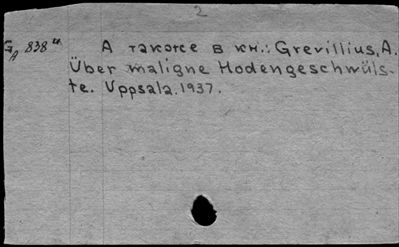 2
А также в кн.: Grevillius, A.
Über maligne Hodengeschwüls-
te. Uppsala. 1937.